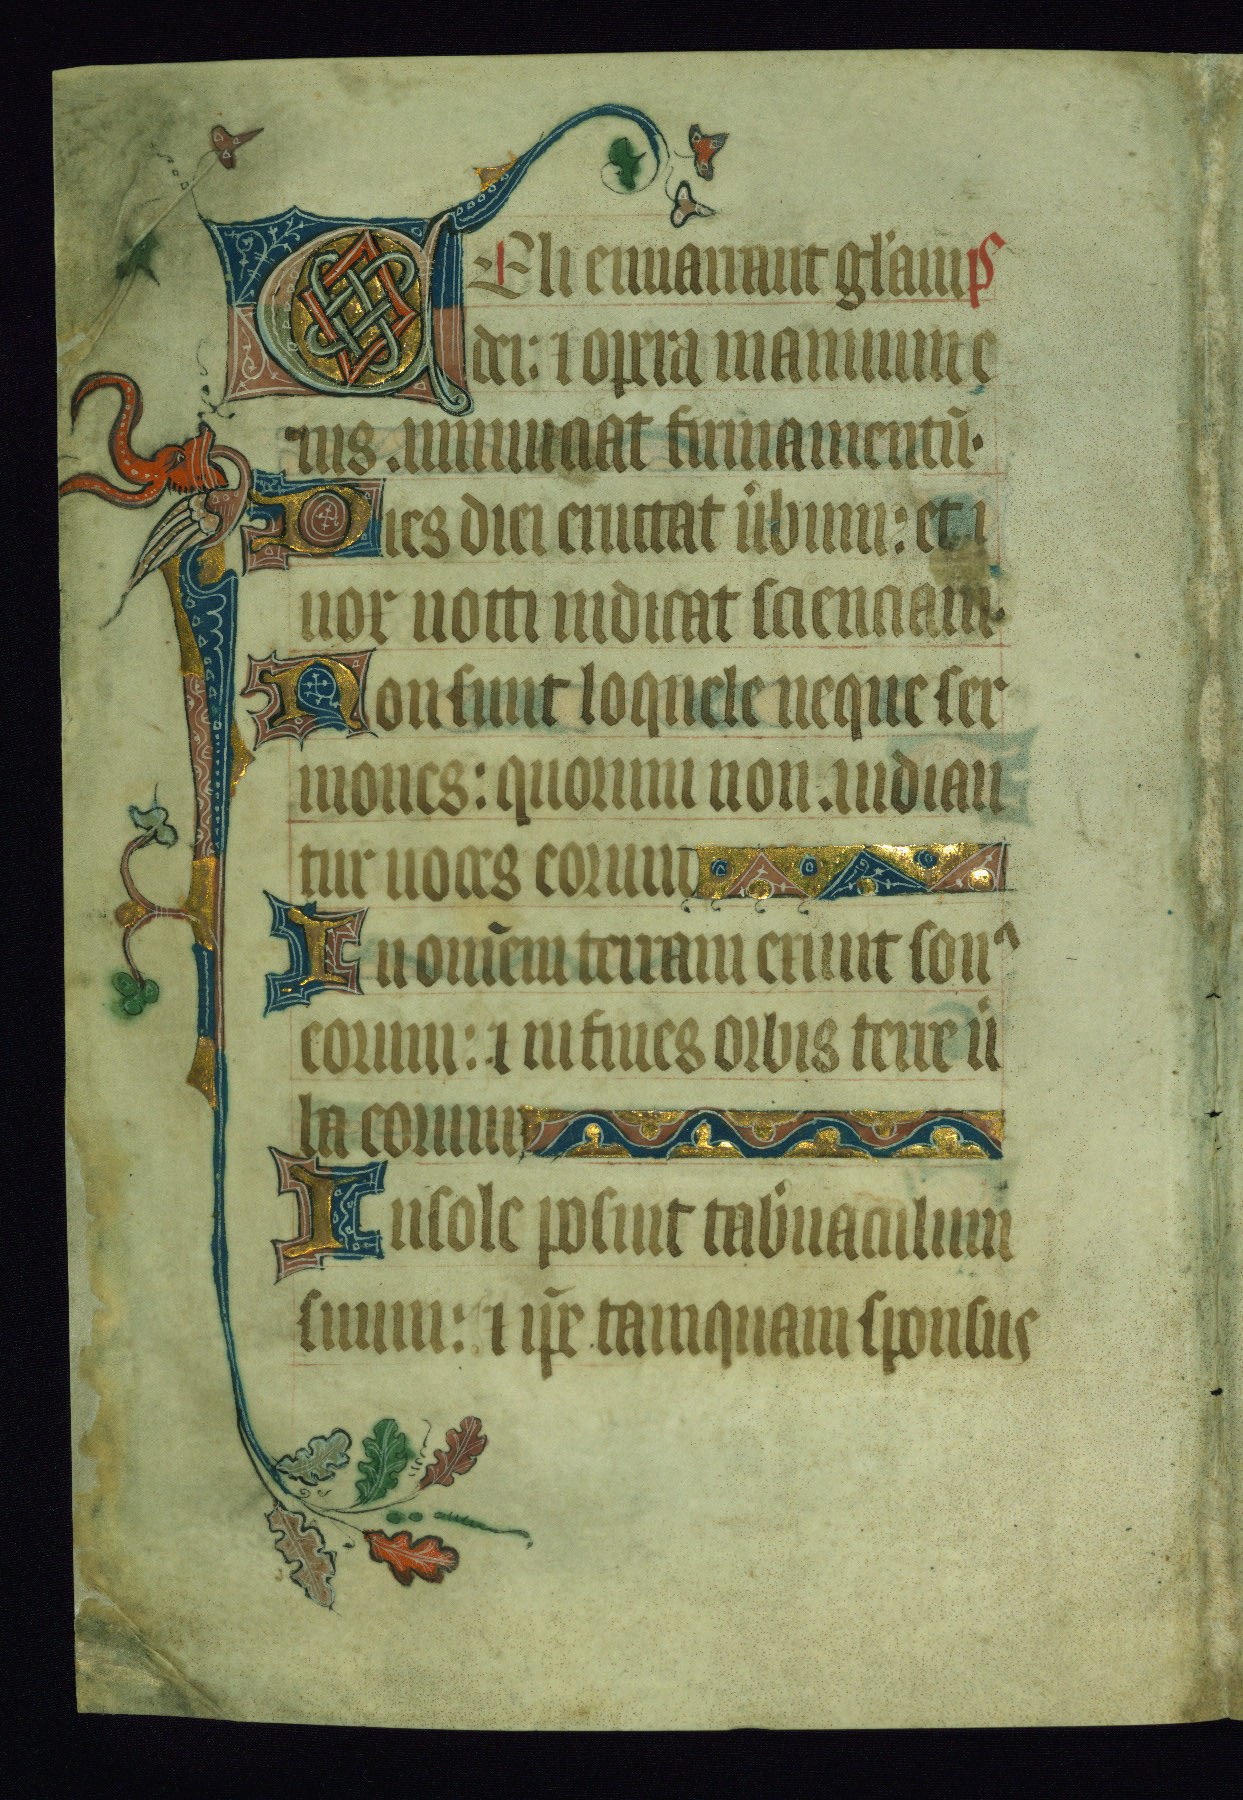 Celi enarrant gl'am ps
dei: ⁊ opera manuum e
ius annuntiat firmamentū.
Dies diei eructat ūbum: et i
nox nocti indicat scienciam.
Non sunt loquele neque ser
mones: quorum non audian
tur uoces eorum
In omnem terram exiuit sonꝰ
eorum: ⁊ in fines orbis terre ū
ba eorum
In sole posuit tab'naculum
suum: ⁊ ip̄e tamquam sponsus